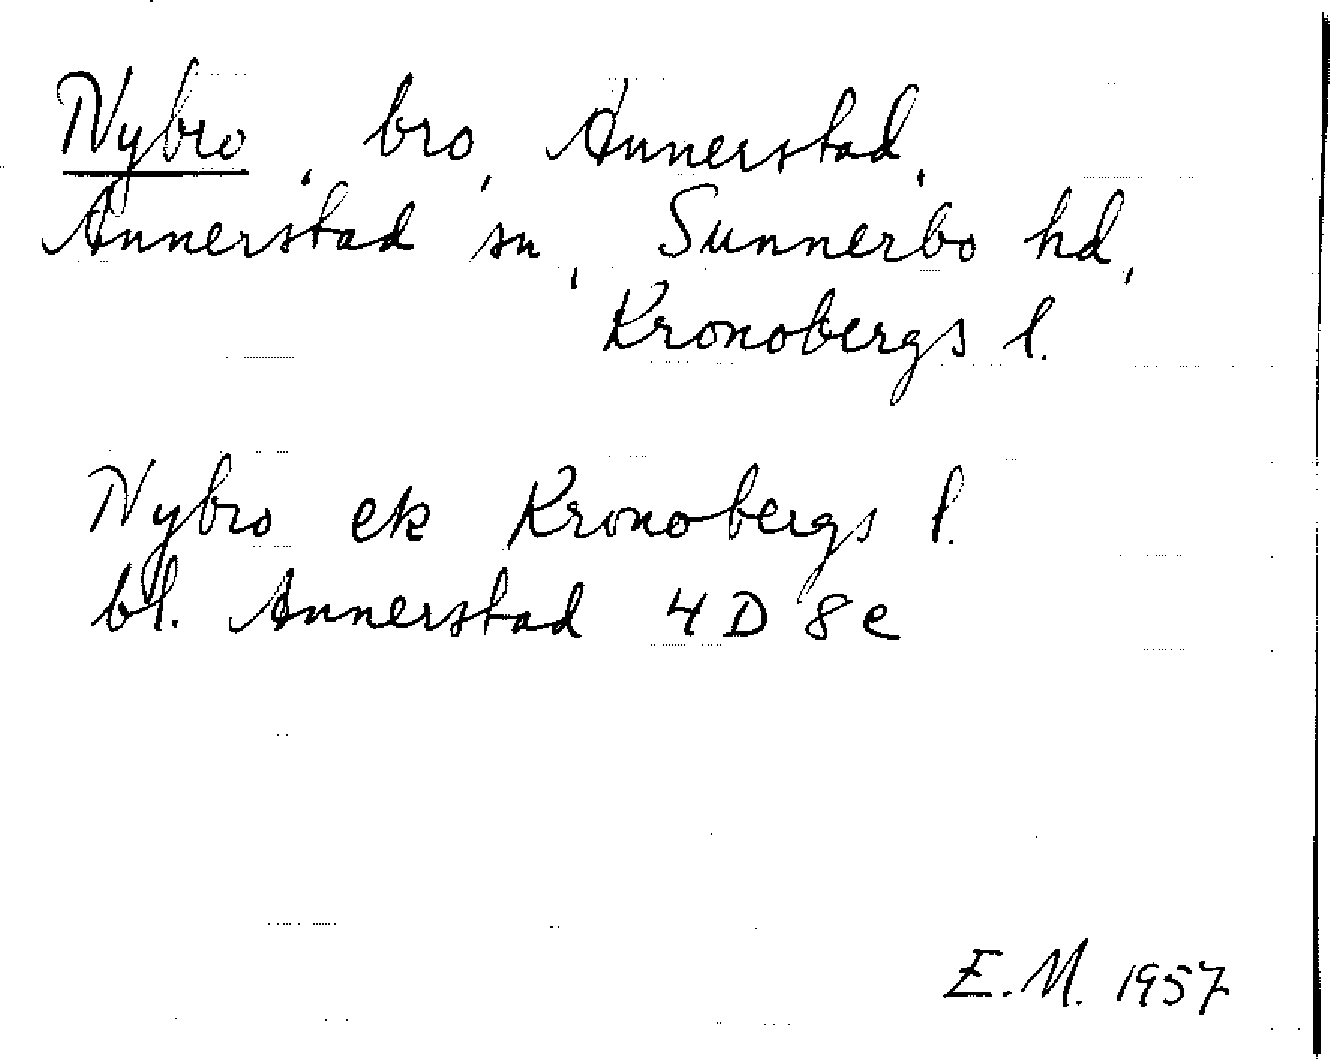 Nybro, bro, Annerstad,
Annerstad sn, Sunnerbo hd,
Kronobergs l.
Nybro ek Kronobergs l.
bl. Annerstad 4 D 8 e
E.M. 1957